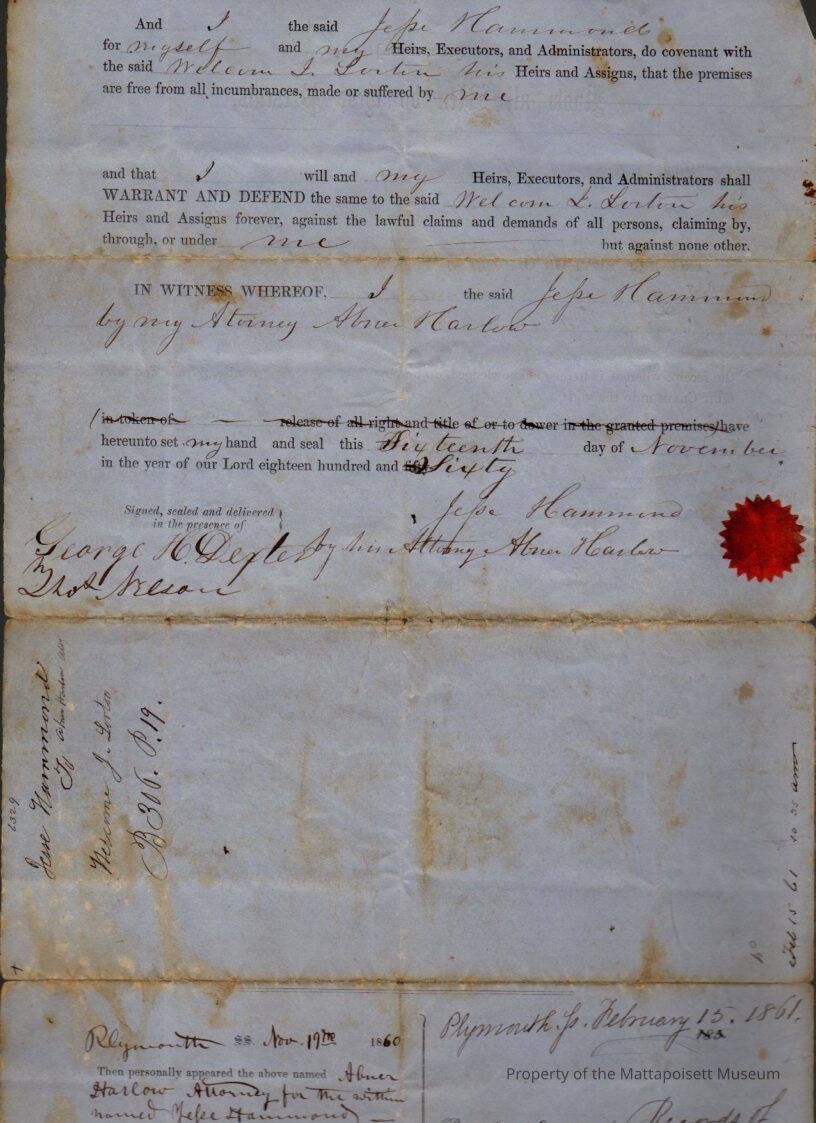 And I the said Jesse Hammond
for myself and my Heirs, Executors, and Administrators, do covenant with
the said Welcom J. Lorton his Heirs and Assigns, that the premises
are free from all incumbrances, made or suffered by me
and that I will and my Heirs, Executors, and Administrators shall
WARRANT AND DEFEND the same to the said Welcom J. Lorton his
Heirs and Assigns forever, against the lawful claims and demands of all persons, claiming by,
through, or under me but against none other.
IN WITNESS WHEREOF, I the said Jesse Hammond
by my Atorney Abner Harlow
(in token of release of all right and title of or to dower in the granted premises) have
hereunto set my hand and seal this Sixteenth day of November
in the year of our Lord eighteen hundred and Sixty
Signed, sealed and delivered
in the presence of
Jesse Hammond
George H. Dexter by his Attorney Abner Harlow
Thos Nelson
6329
Jesse Hammond
To
Welcome J. Lorton
B 306. P. 19.
Feb 15 61 10 35 am
Plymouth SS. Nov. 19th 1860
Then personally appeared the above named Abner
Harlow Attorney for the within
named Jesse Hammond
Plymouth Ss. February 15. 1861.
185
Property of the Mattapoisett Museum
Records of